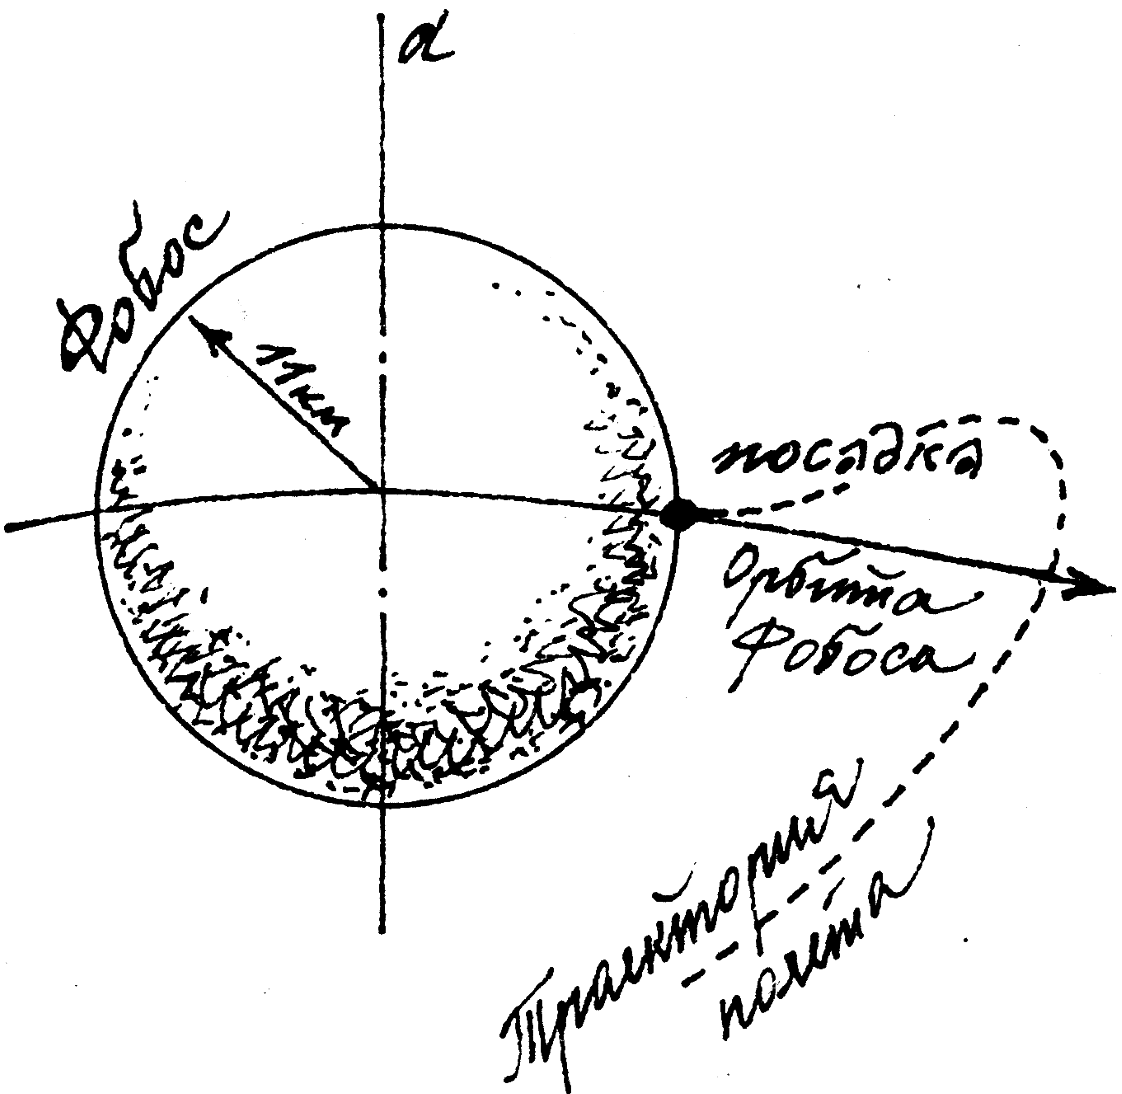 α
Фобос
11км
посадка
Орбита
Фобоса
Траектория
полета